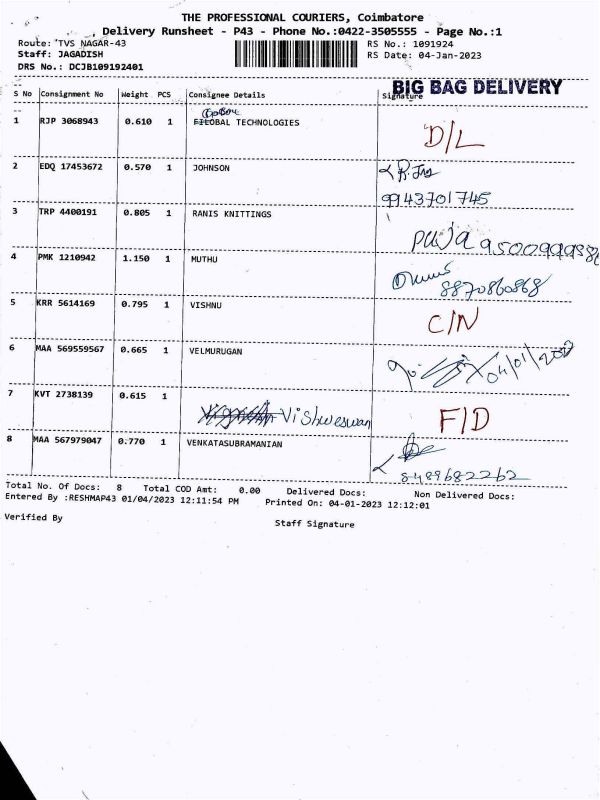 THE PROFESSIONAL COURIERS, Coimbatore
Delivery Runsheet - P43 - Phone No.:0422-3505555 - Page No.:1
Route: TVS NAGAR-43 RS No.: 1091924
Staff: JAGADISH RS Date: 04-Jan-2023
DRS No.: DCJB109192401
BIG BAG DELIVERY
S No Consignment No Weight PCS Consignee Details Signature
1 RJP 3068943 0.610 1 FILOBAL TECHNOLOGIES D/L
2 EDQ 17453672 0.570 1 JOHNSON
9943701745
3 TRP 4400191 0.805 1 RANIS KNITTINGS
puja
4 PMK 1210942 1.150 1 MUTHU
8870860868
5 KRR 5614169 0.795 1 VISHNU C/N
6 MAA 569559567 0.665 1 VELMURUGAN
7 KVT 2738139 0.615 1 Vishweswan F/D
8 MAA 567979047 0.770 1 VENKATASUBRAMANIAN
8489682262
Total No. Of Docs: 8 Total COD Amt: 0.00 Delivered Docs: Non Delivered Docs:
Entered By :RESHMAP43 01/04/2023 12:11:54 PM Printed On: 04-01-2023 12:12:01
Verified By Staff Signature